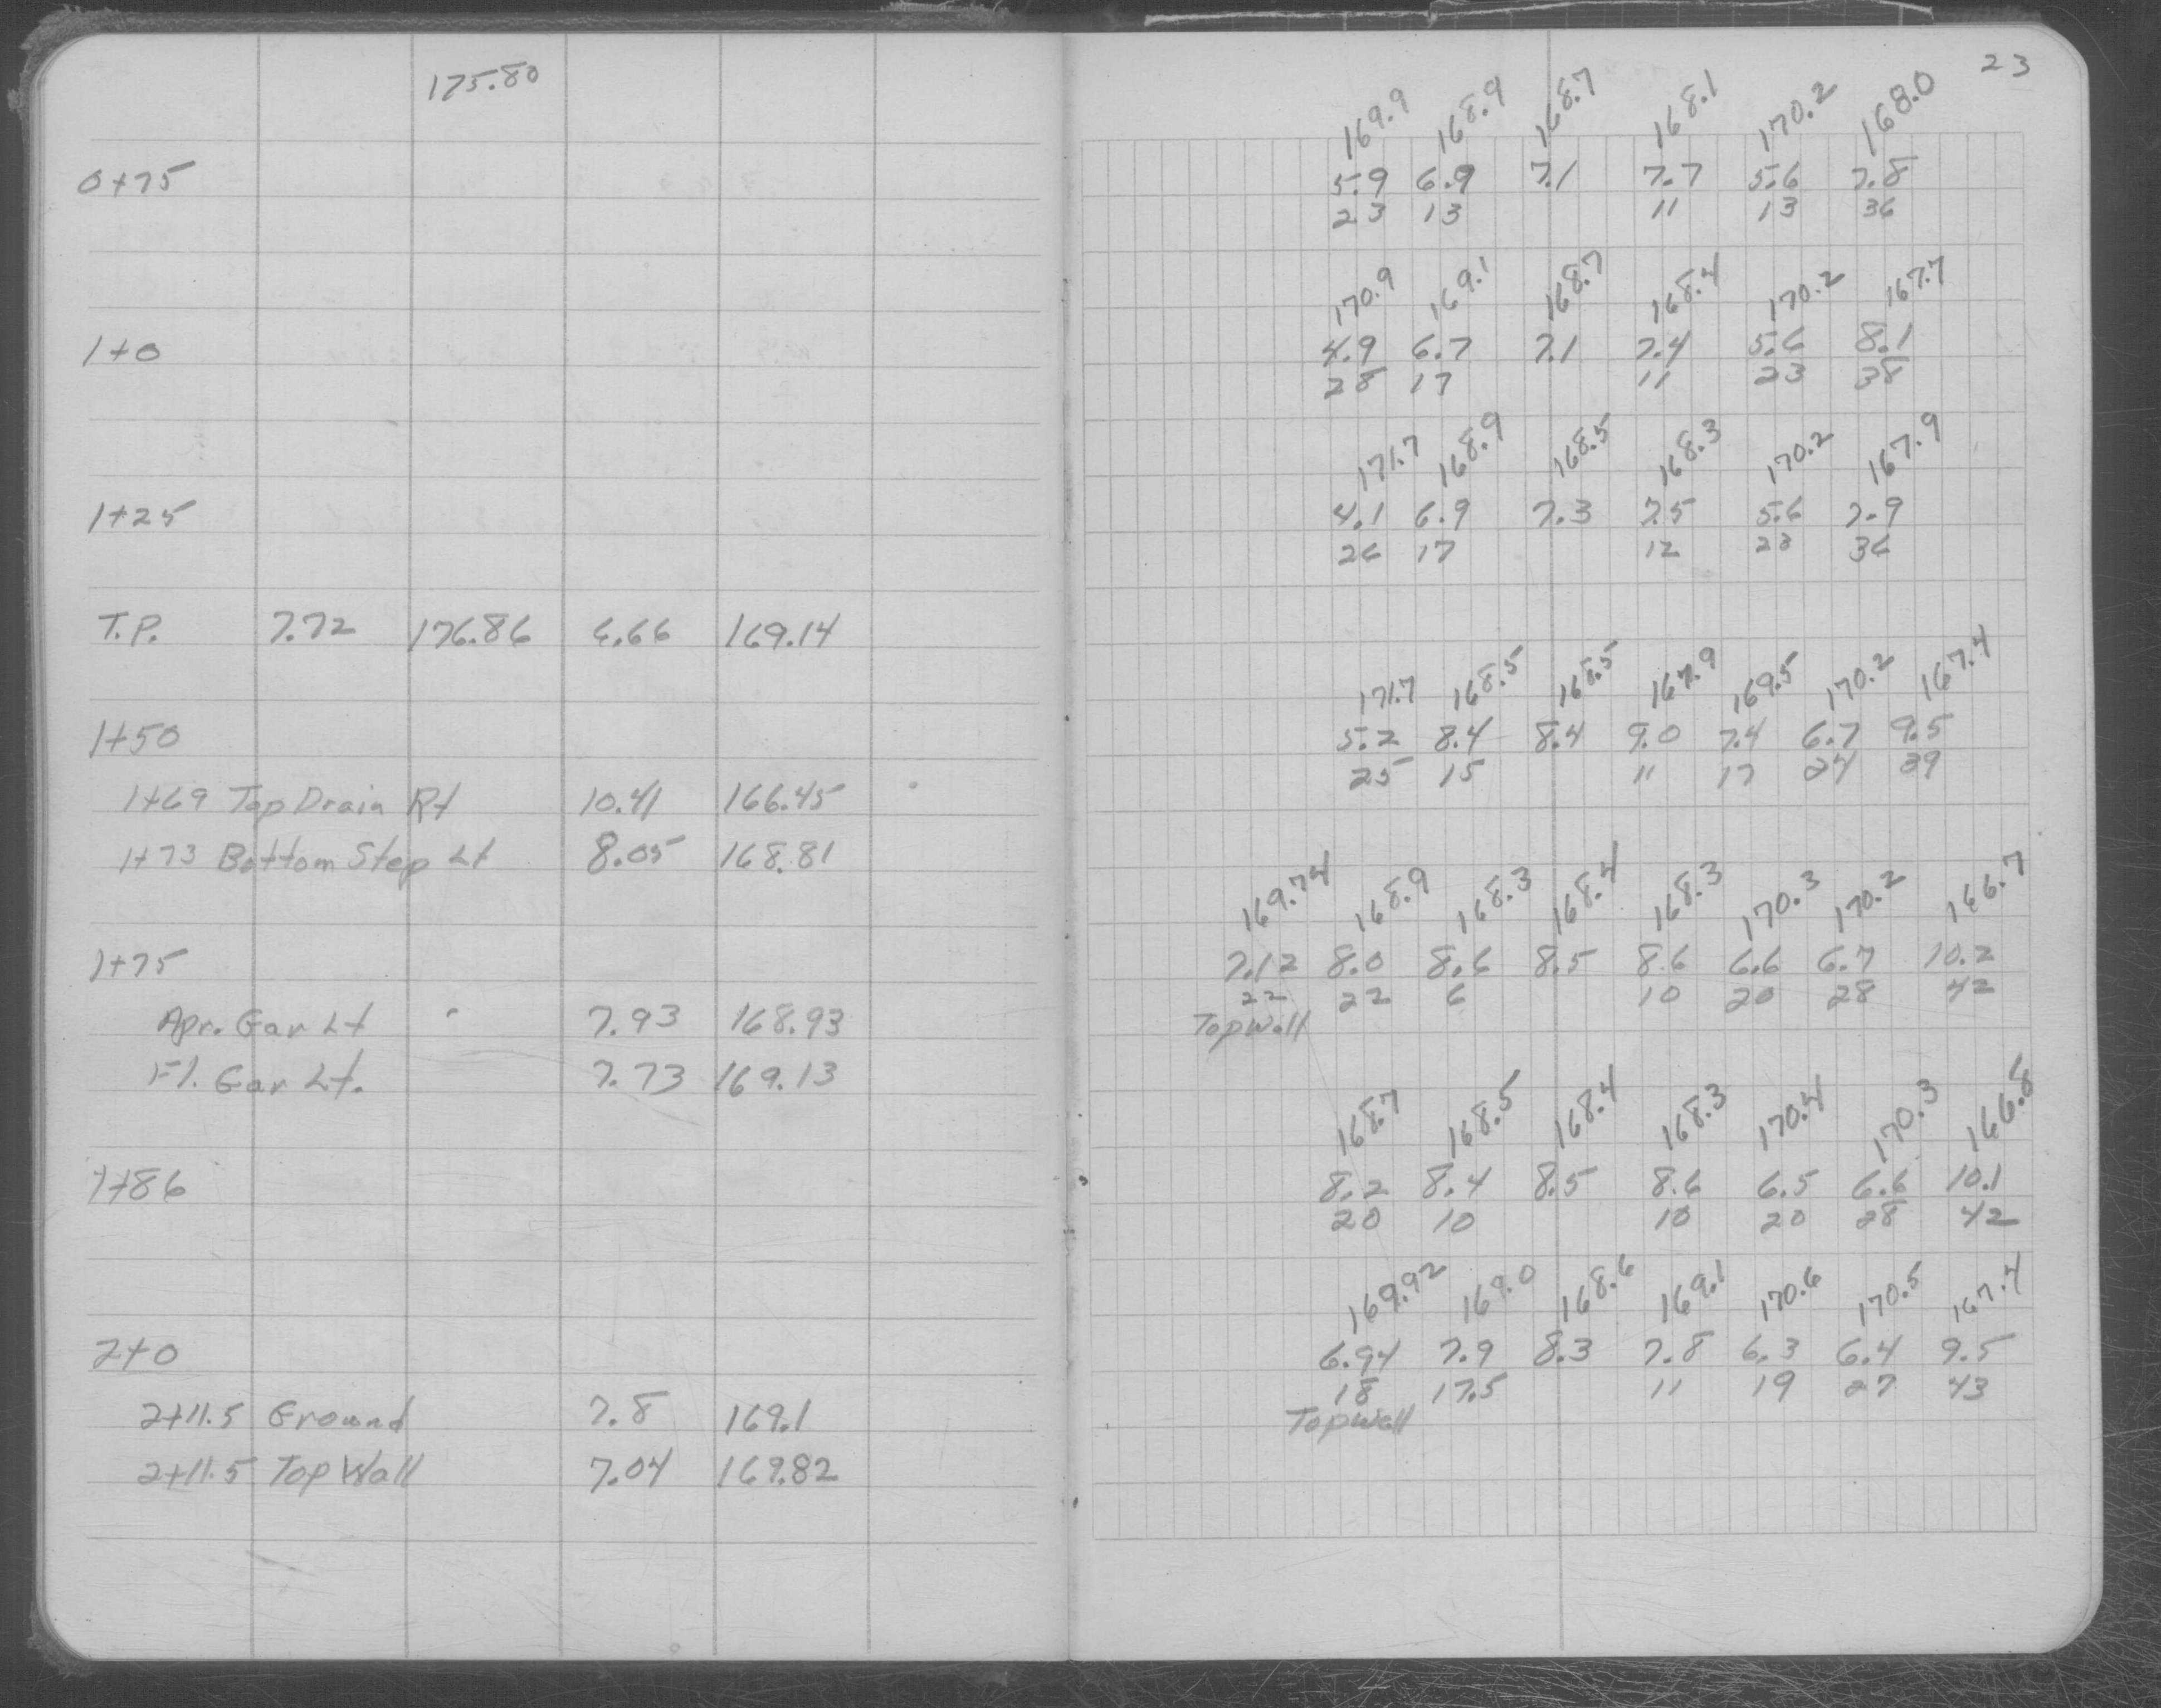 175.80
0+75
1+0
1+25
T.P. 7.72 176.86 6.66 169.14
1+50
1+69 Top Drain Rt 10.41 166.45
1+73 Bottom Step Lt 8.05 168.81
1+75
Apr. Gar Lt 7.93 168.93
Fl. Gar Lt. 7.73 169.13
1+86
2+0
2+11.5 Ground 7.8 169.1
2+11.5 Top Wall 7.04 169.82
23
169.9 168.9 168.7 168.1 170.2 168.0
5.9 6.9 7.1 7.7 5.6 7.8
23 13 11 13 36
170.9 169.1 168.7 168.4 170.2 167.7
4.9 6.7 7.1 7.4 5.6 8.1
28 17 11 23 38
171.7 168.9 168.5 168.3 170.2 167.9
4.1 6.9 7.3 7.5 5.6 7.9
26 17 12 23 36
171.7 168.5 168.5 167.9 169.5 170.2 167.4
5.2 8.4 8.4 9.0 7.4 6.7 9.5
25 15 11 17 24 39
169.74 168.9 168.3 168.4 168.3 170.3 170.2 166.7
7.12 8.0 8.6 8.5 8.6 6.6 6.7 10.2
22 22 6 10 20 28 42
Top Wall
168.7 168.5 168.4 168.3 170.4 170.3 166.8
8.2 8.4 8.5 8.6 6.5 6.6 10.1
20 10 10 20 28 42
169.92 169.0 168.6 169.1 170.6 170.5 167.4
6.94 7.9 8.3 7.8 6.3 6.4 9.5
18 17.5 11 19 27 43
Top Wall